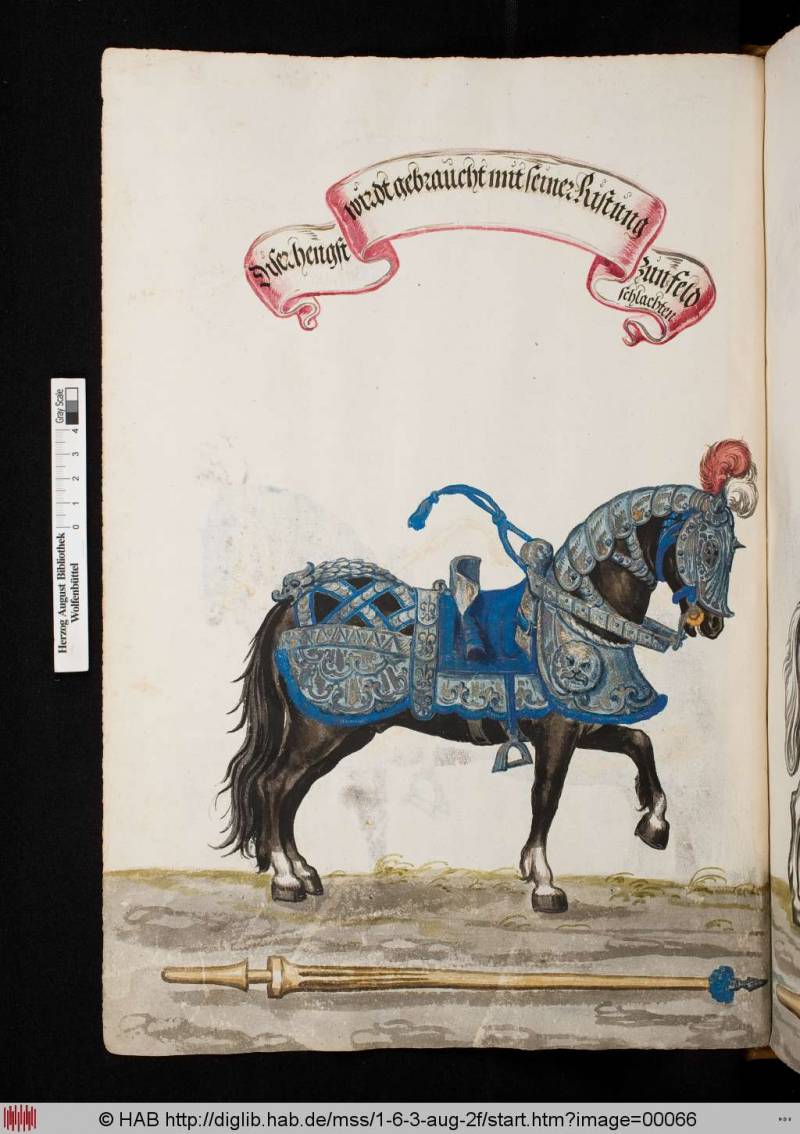 Diser hengst
wirdt gebraucht mit seiner Ristung
Zun feld
schlachten
Herzog August Bibliothek
Wolfenbüttel
0 1 2 3 4
Gray Scale
© HAB http://diglib.hab.de/mss/1-6-3-aug-2f/start.htm?image=00066